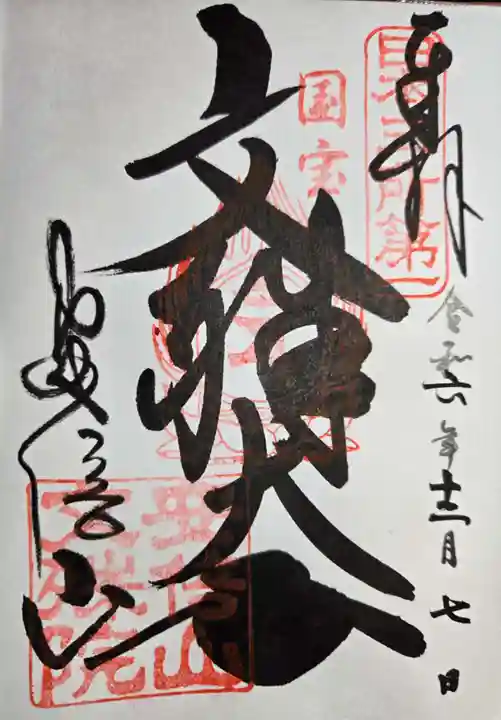 奉拝
日本三所第一
令和六年十二月七日
国宝
文殊大
安倍山
文殊院